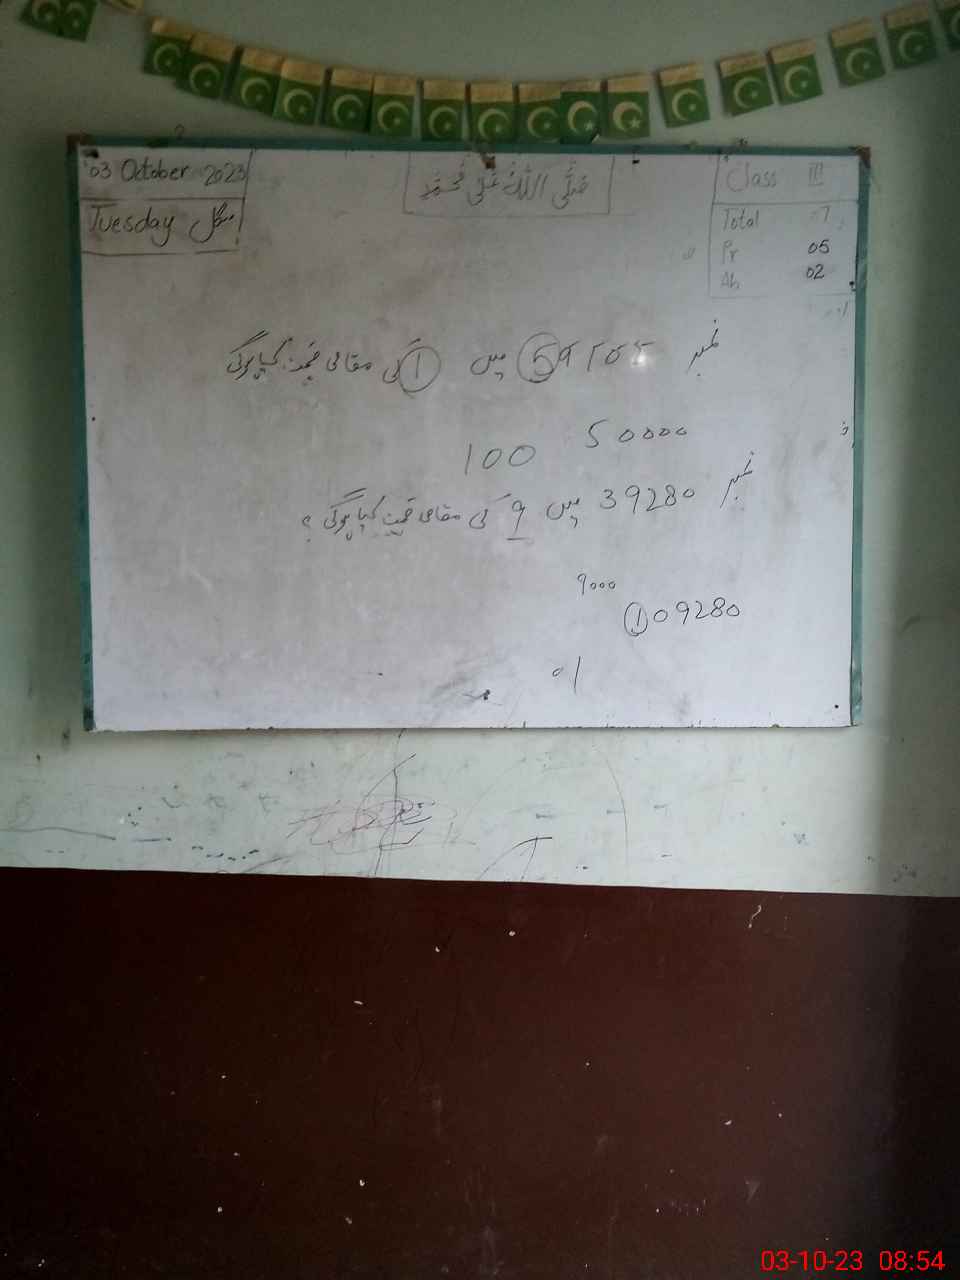 03 October 2023
Tuesday منگل
صَلَّى اللهُ عَلٰى مُحَمَّد
Class III
Total 07
Pr 05
Ab 02
نمبر 59155 میں 1 کی مقامی قیمت کیا ہوگی
50000
100
نمبر 39280 میں 9 کی مقامی قیمت کیا ہوگی ؟
9000
109280
01
03-10-23 08:54